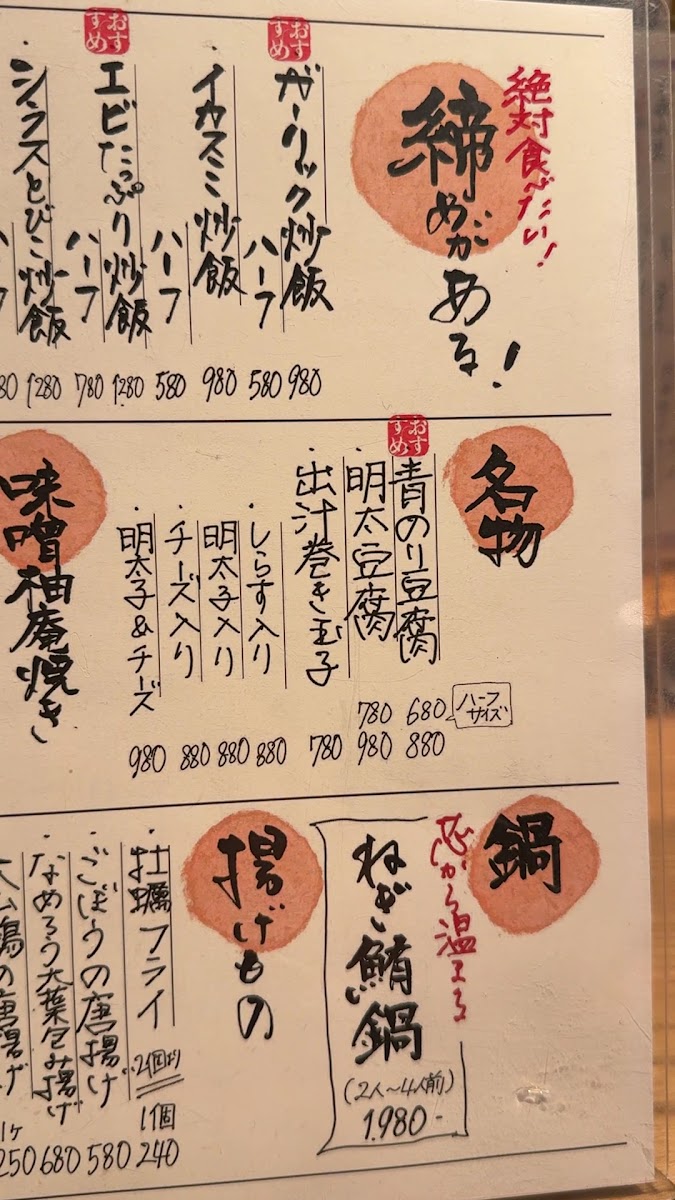 絶対食べたい!
締めがある!
おすすめ
・ガーリック炒飯 980
ハーフ 580
・イカスミ炒飯 980
ハーフ 580
おすすめ
・エビたっぷり炒飯 1280
ハーフ 780
・シラスとびこ炒飯 1280
名物
おすすめ
青のり豆腐 ハーフサイズ 680 880
・明太豆腐 780 980
・出汁巻き玉子 780
・しらす入り 880
・明太子入り 880
・チーズ入り 880
・明太子&チーズ 980
味噌柚庵焼き
鍋
芯から温まる
ねぎま鮪鍋
(2人〜4人前)
1.980-
揚げもの
・牡蠣フライ 2個より 1個 240
・ごぼうの唐揚げ 580
・なめろう大葉包み揚げ 680
の唐揚げ 1ヶ 250